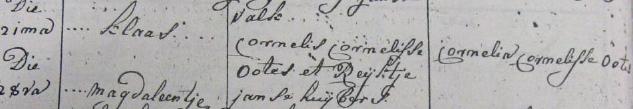 Die
valse
zima .... klaas.
Cornelis Cornelisse
Cornelia Cornelisse Ootes
Die
Ootes et Reijstje
28va .... magdaleentje
janse kuijbers.